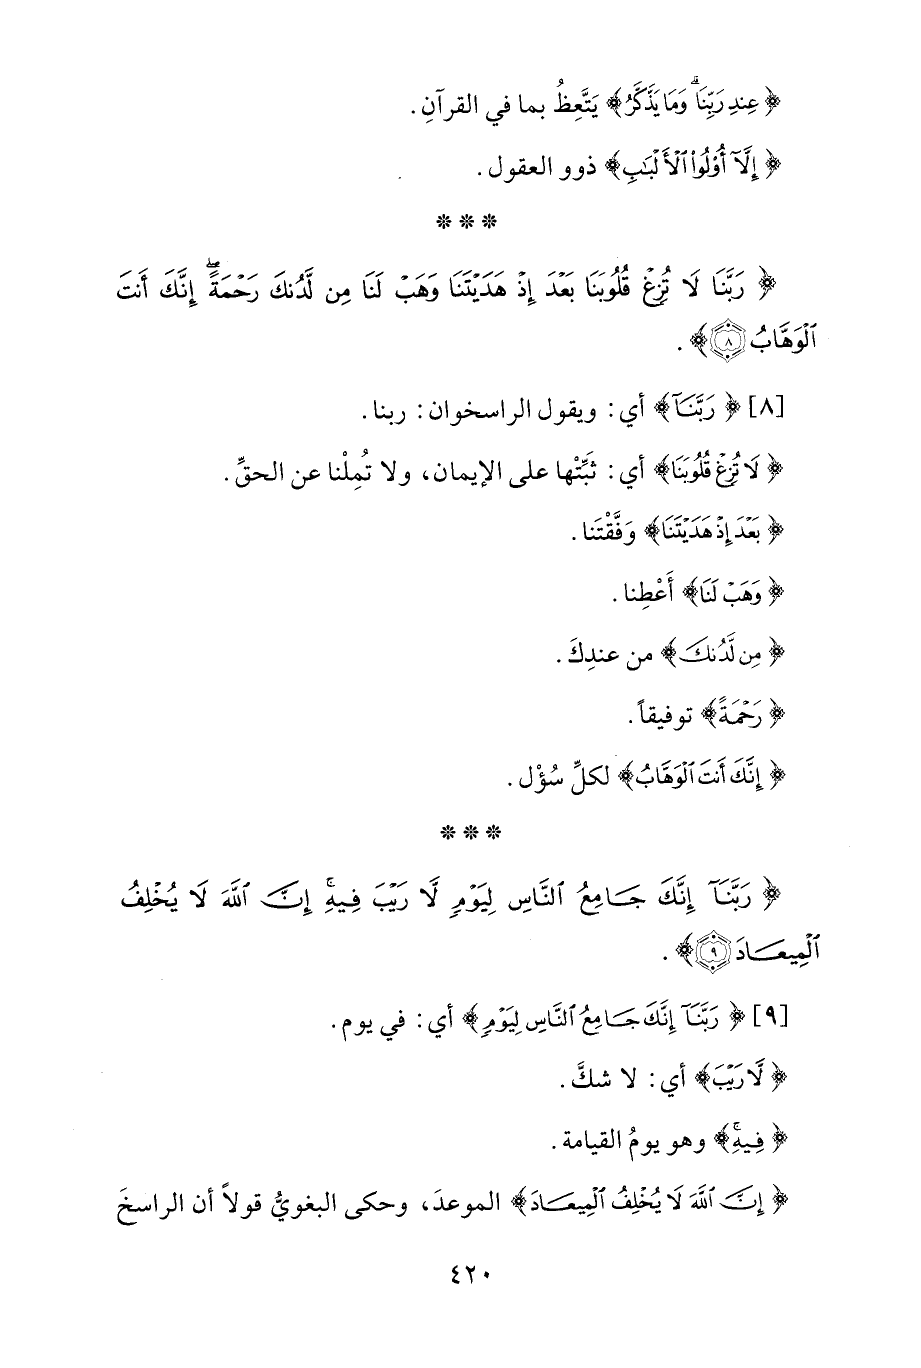 ﴿عِندِ رَبِّنَاۗ وَمَا يَذَّكَّرُ﴾ يَتَّعِظُ بما في القرآنِ.
﴿إِلَّآ أُوْلُواْ ٱلْأَلْبَٰبِ﴾ ذوو العقول.
***
﴿رَبَّنَا لَا تُزِغْ قُلُوبَنَا بَعْدَ إِذْ هَدَيْتَنَا وَهَبْ لَنَا مِن لَّدُنكَ رَحْمَةًۖ إِنَّكَ أَنتَ
ٱلْوَهَّابُ ٨﴾.
[٨] ﴿رَبَّنَآ﴾ أي: ويقول الراسخوان: ربنا.
﴿لَا تُزِغْ قُلُوبَنَا﴾ أي: ثَبِّتْها على الإيمان، ولا تُمِلْنا عن الحقِّ.
﴿بَعْدَ إِذْ هَدَيْتَنَا﴾ وَفَّقْتَنا.
﴿وَهَبْ لَنَا﴾ أَعْطِنا.
﴿مِن لَّدُنكَ﴾ من عندِكَ.
﴿رَحْمَةً﴾ توفيقاً.
﴿إِنَّكَ أَنتَ ٱلْوَهَّابُ﴾ لكلِّ سُؤْل.
***
﴿رَبَّنَآ إِنَّكَ جَامِعُ ٱلنَّاسِ لِيَوْمٍ لَّا رَيْبَ فِيهِۚ إِنَّ ٱللَّهَ لَا يُخْلِفُ
ٱلْمِيعَادَ ٩﴾.
[٩] ﴿رَبَّنَآ إِنَّكَ جَامِعُ ٱلنَّاسِ لِيَوْمٍ﴾ أي: في يوم.
﴿لَّا رَيْبَ﴾ أي: لا شكَّ.
﴿فِيهِۚ﴾ وهو يومُ القيامة.
﴿إِنَّ ٱللَّهَ لَا يُخْلِفُ ٱلْمِيعَادَ﴾ الموعدَ، وحكى البغويُّ قولاً أن الراسخَ
٤٢٠